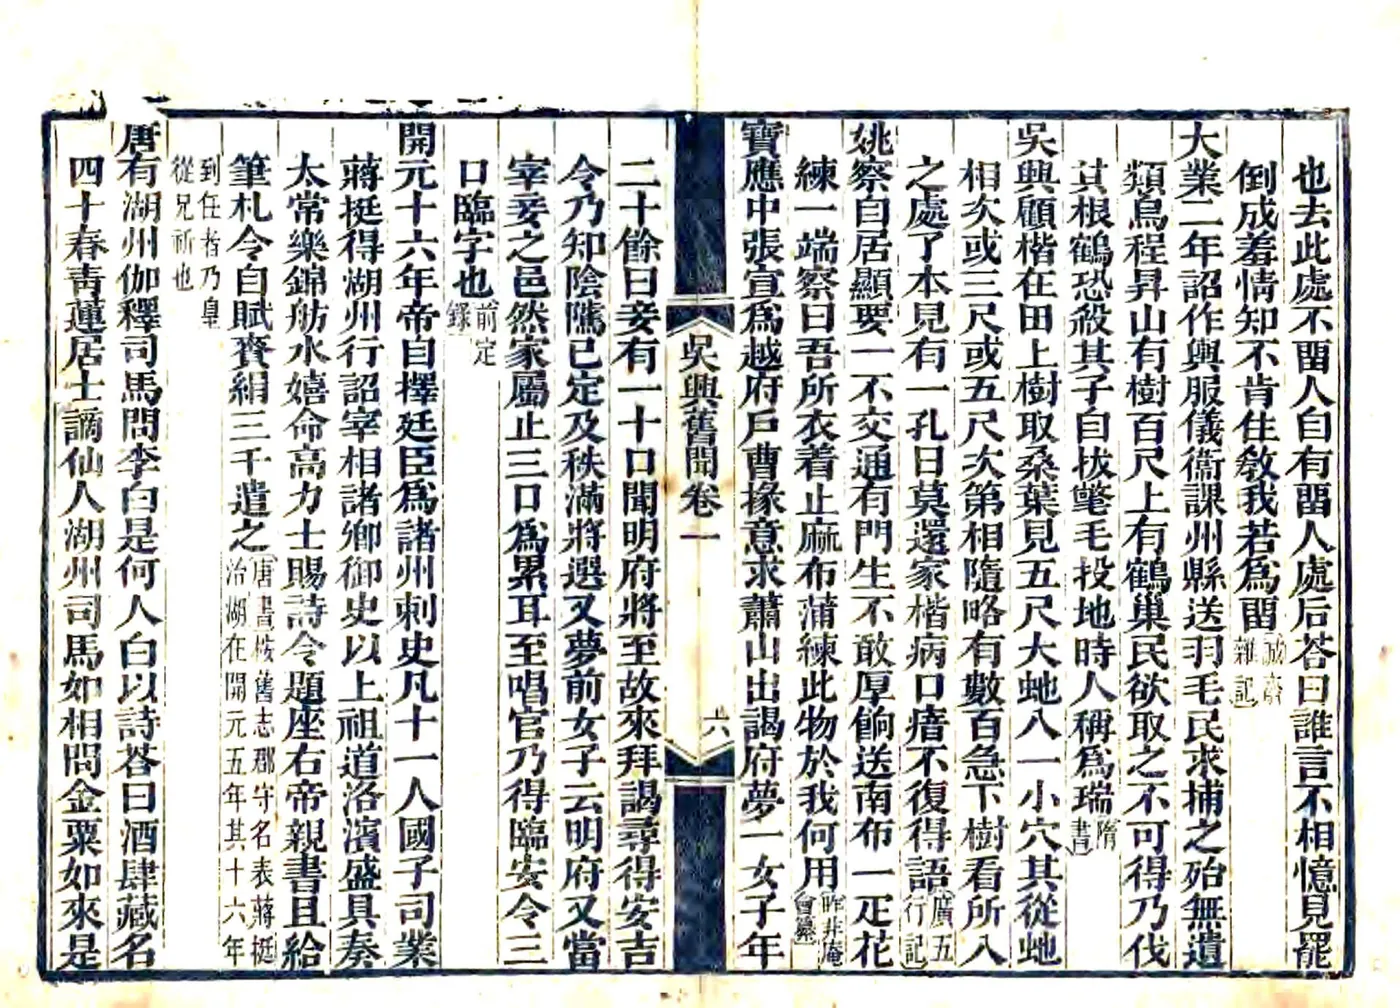 也去此處不畱人自有畱人處后荅曰誰言不相憶見罷
倒成羞情知不肯住敎我若爲畱誠齋雜記
大業二年詔作輿服儀衞課州縣送羽毛民求捕之殆無遺
類烏程昇山有樹百尺上有鶴巢民欲取之不可得乃伐
其根鶴恐殺其子自拔氅毛投地時人稱爲瑞隋書
吳興顧楷在田上樹取桑葉見五尺大虵入一小穴其從虵
相次或三尺或五尺次第相隨略有數百急下樹看所入
之處了不見有一孔日莫還家楷病口瘖不復得語廣五行記
姚察自居顯要一不交通有門生不敢厚餉送南布一疋花
練一端察曰吾所衣着止麻布蒲練此物於我何用昨非庵會纂
寶應中張宣爲越府戶曹掾意求蕭山出謁府夢一女子年
吳興舊聞卷一
六
二十餘曰妾有一十口聞明府將至故來拜謁尋得安吉
令乃知陰隲已定及秩滿將選又夢前女子云明府又當
宰妾之邑然家屬止三口爲累耳至唱官乃得臨安令三
口臨字也前定錄
開元十六年帝自擇廷臣爲諸州刺史凡十一人國子司業
蔣挺得湖州行詔宰相諸鄉御史以上祖道洛濱盛具奏
太常樂錦舫水嬉命高力士賜詩令題座右帝親書且給
筆札令自賦賚絹三千遣之唐書桉舊志郡守名表蔣挺治湖在開元五年其十六年
到任者乃皇從兄祈也
唐有湖州伽釋司馬問李白是何人白以詩荅曰酒肆藏名
四十春靑蓮居士謫仙人湖州司馬如相問金粟如來是